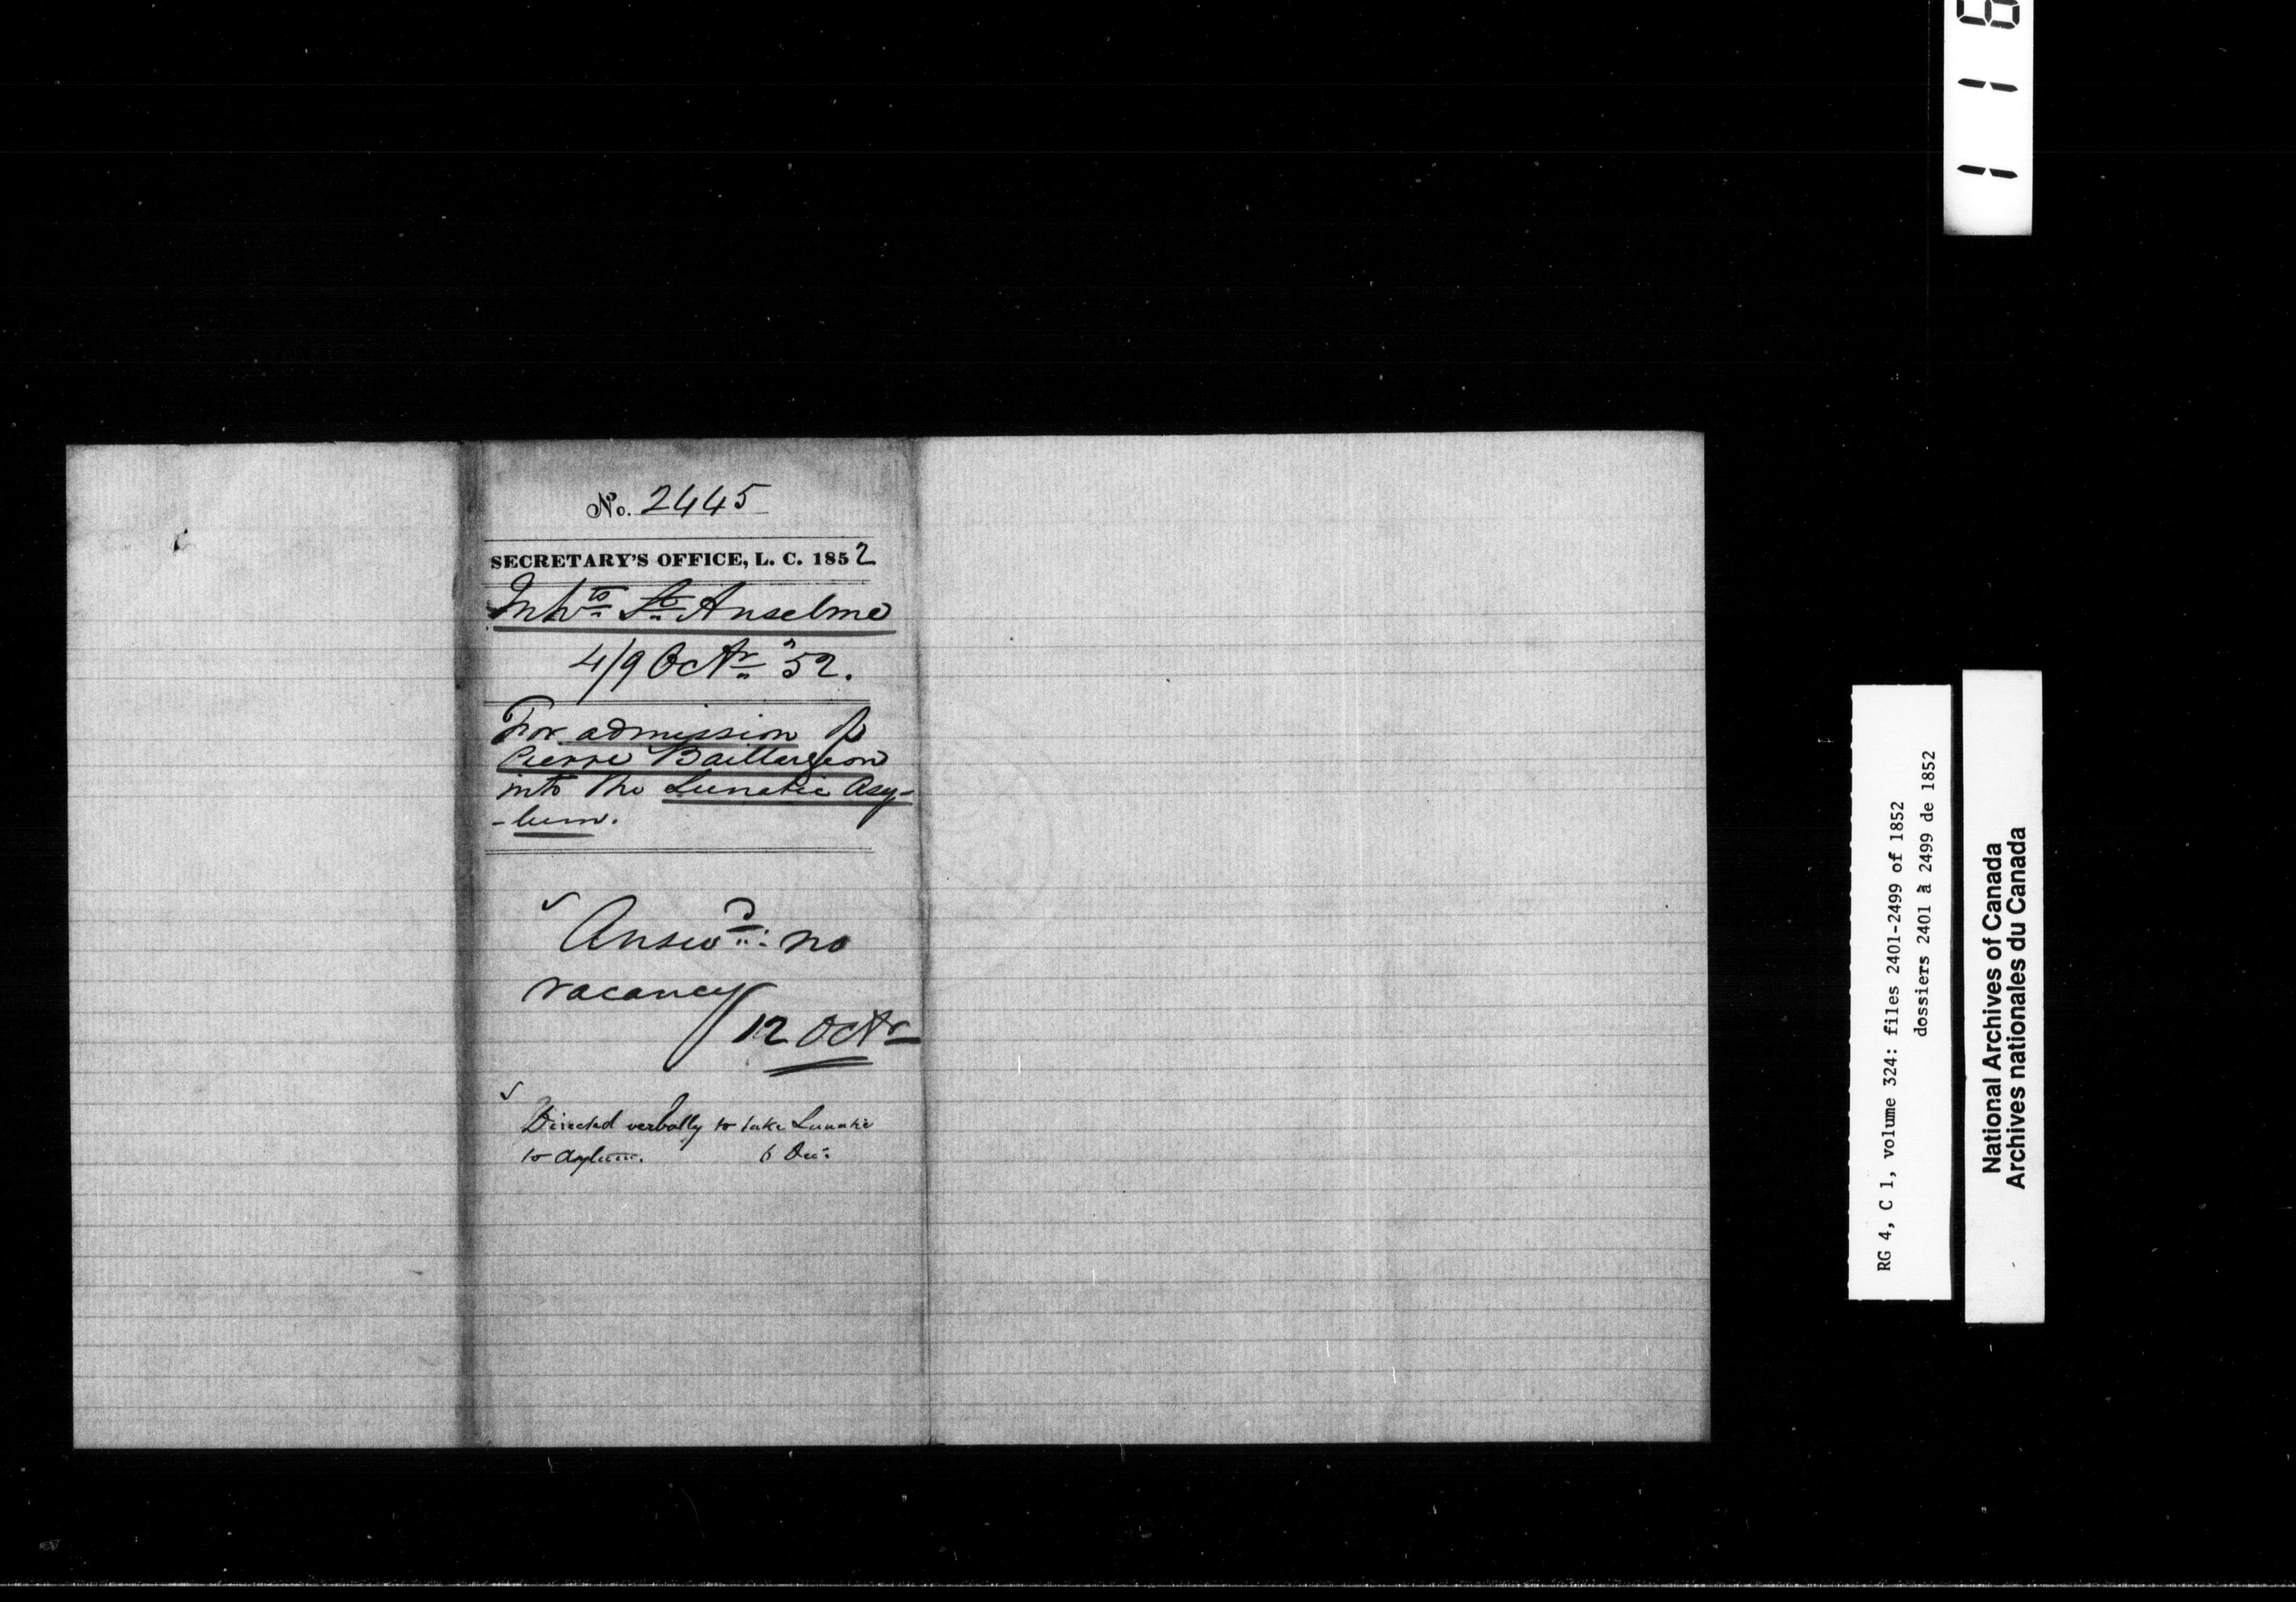 No. 2445
SECRETARY'S OFFICE, L. C. 1852
Inhts St Anselme
4/9 Octr 52.
For admission of
Pierre Baillargeon
into the Lunatic Asy-
-lum.
Answd: no
vacancy
12 Octr
Directed verbally to take Lunatic
to Asylum. 6 Dec:
RG 4, C 1, volume 324: files 2401-2499 of 1852
dossiers 2401 à 2499 de 1852
National Archives of Canada
Archives nationales du Canada
1 1 6